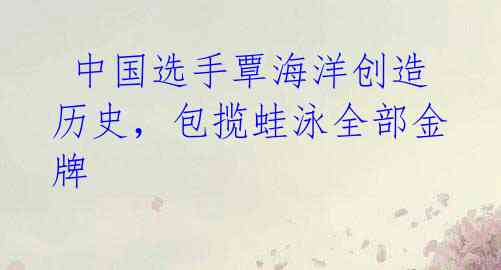 中国选手覃海洋创造
历史，包揽蛙泳全部金
牌